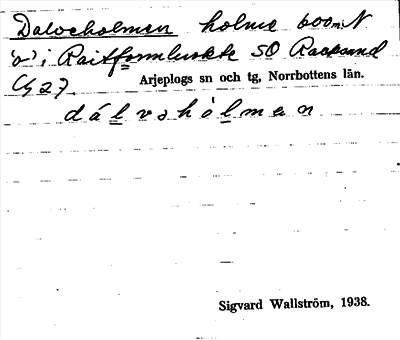 Dalvoholmen holme 600 m N
"o" i Raitformluokte SO Racksund
Cg 27.
Arjeplogs sn och tg, Norrbottens län.
dálvəhòlmen
Sigvard Wallström, 1938.